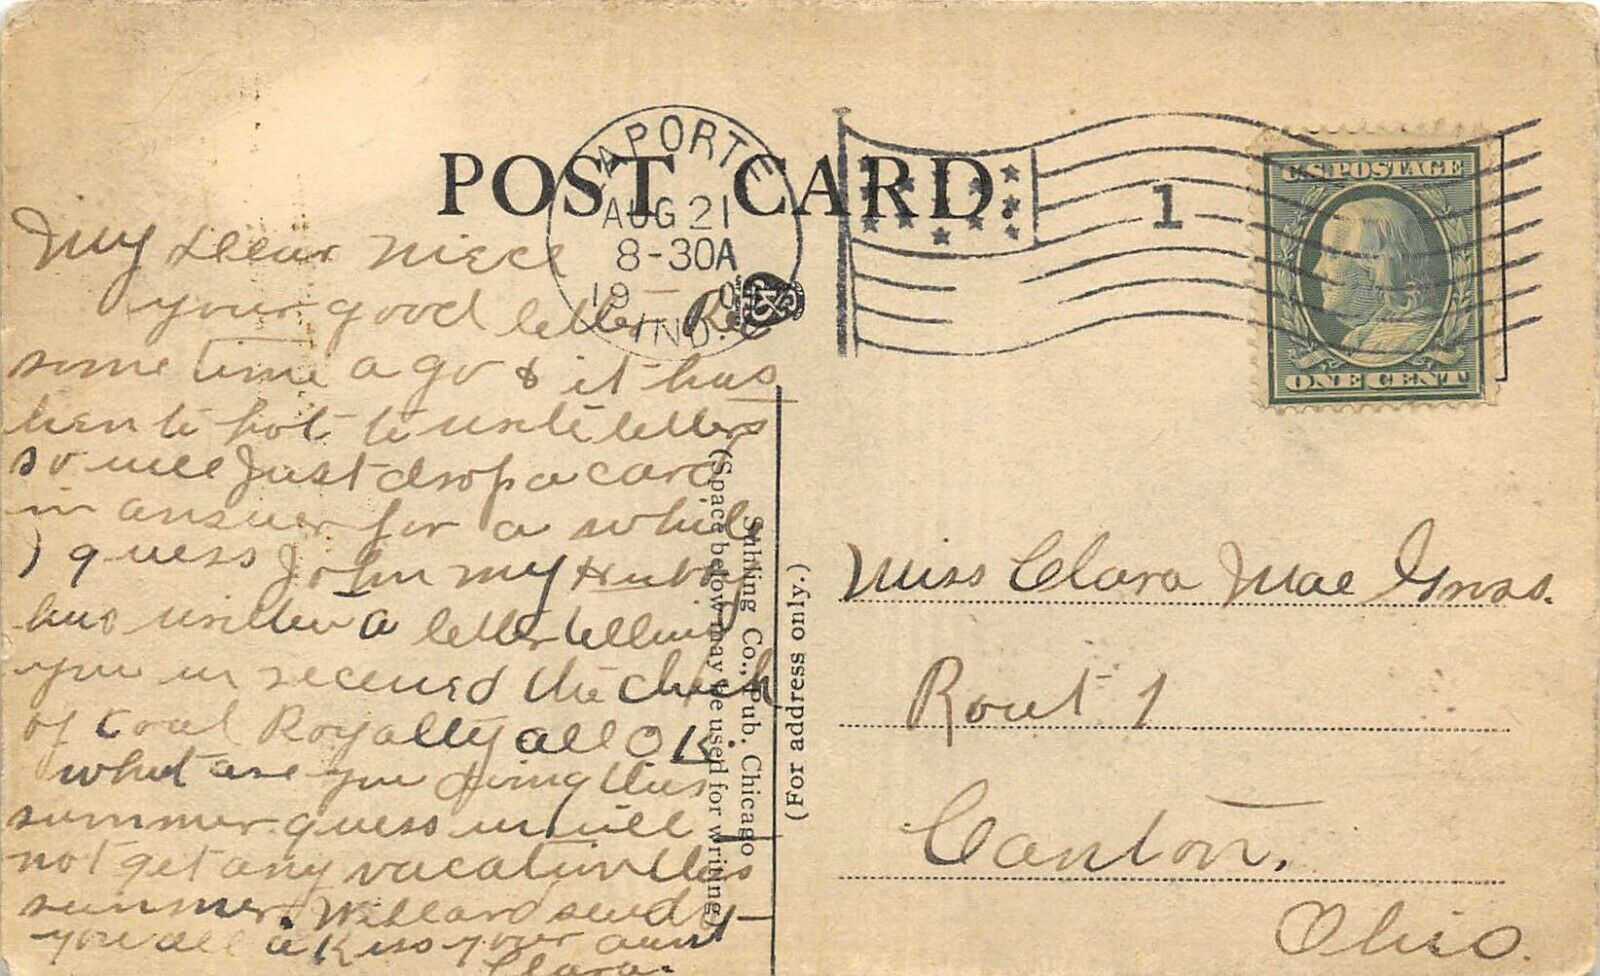 POST CARD.
LAPORTE
AUG 21
8-30A
19 0
IND.
1
U.S. POSTAGE
ONE CENT
My Dear Niece
your good letter Rec
some time a go & it has
been to hot to write letters
so will Just drop a card
in answer for a while
I guess John my Hubby
has written a letter telling
you we received the check
of Coal Royalty all OK.
what are you doing this
summer. guess we will
not get any vacation this
summer. Willard sends
you all a Kiss your aunt
Clara.
Suhling Co., Pub. Chicago
(Space below may be used for writing)
(For address only.)
Miss Clara Mae
Rout 1
Canton,
Ohio.